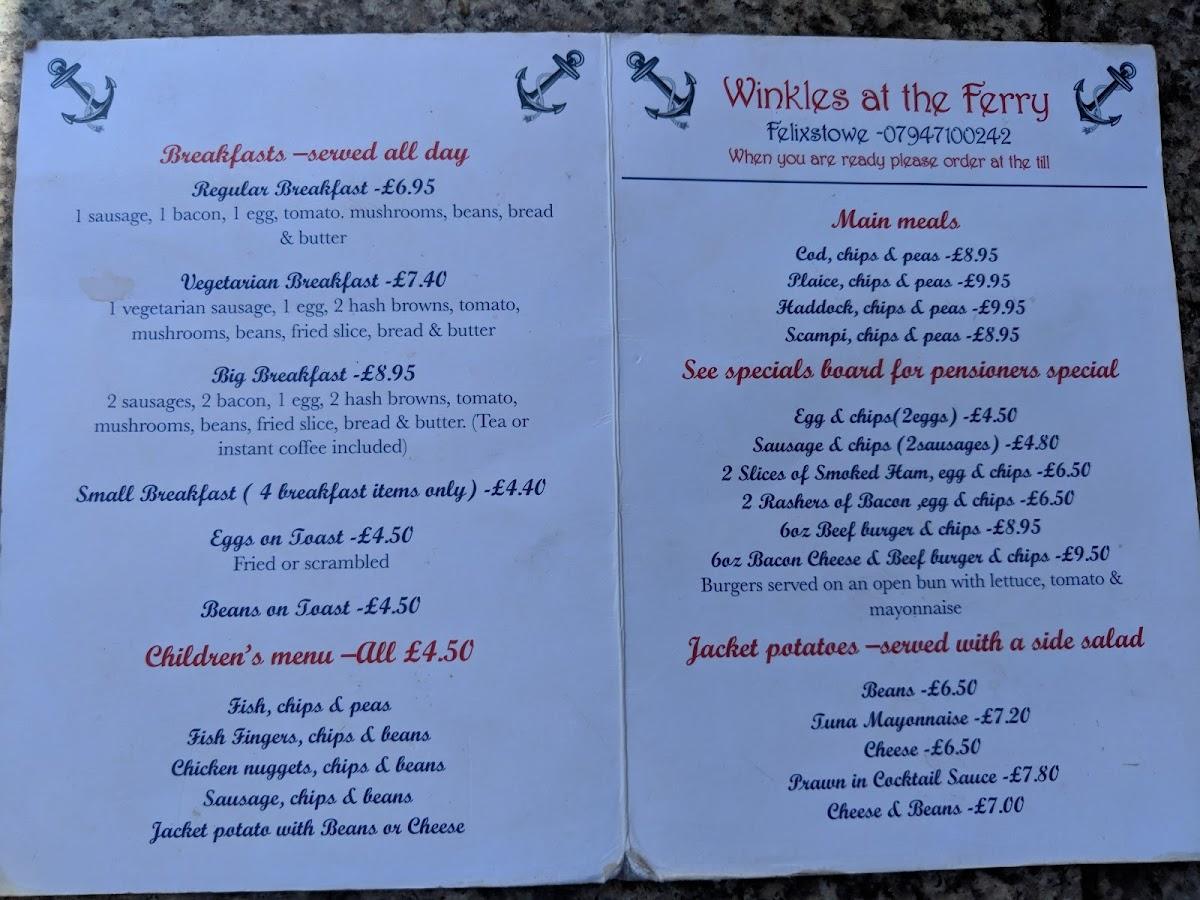 Breakfasts –served all day
Regular Breakfast -£6.95
1 sausage, 1 bacon, 1 egg, tomato. mushrooms, beans, bread
& butter
Vegetarian Breakfast -£7.40
1 vegetarian sausage, 1 egg, 2 hash browns, tomato,
mushrooms, beans, fried slice, bread & butter
Big Breakfast -£8.95
2 sausages, 2 bacon, 1 egg, 2 hash browns, tomato,
mushrooms, beans, fried slice, bread & butter. (Tea or
instant coffee included)
Small Breakfast ( 4 breakfast items only) -£4.40
Eggs on Toast -£4.50
Fried or scrambled
Beans on Toast -£4.50
Children's menu –All £4.50
Fish, chips & peas
Fish Fingers, chips & beans
Chicken nuggets, chips & beans
Sausage, chips & beans
Jacket potato with Beans or Cheese
Winkles at the Ferry
Felixstowe -07947100242
When you are ready please order at the till
Main meals
Cod, chips & peas -£8.95
Plaice, chips & peas -£9.95
Haddock, chips & peas -£9.95
Scampi, chips & peas -£8.95
See specials board for pensioners special
Egg & chips(2eggs) -£4.50
Sausage & chips (2sausages) -£4.80
2 Slices of Smoked Ham, egg & chips -£6.50
2 Rashers of Bacon ,egg & chips -£6.50
6oz Beef burger & chips -£8.95
6oz Bacon Cheese & Beef burger & chips -£9.50
Burgers served on an open bun with lettuce, tomato &
mayonnaise
Jacket potatoes –served with a side salad
Beans -£6.50
Tuna Mayonnaise -£7.20
Cheese -£6.50
Prawn in Cocktail Sauce -£7.80
Cheese & Beans -£7.00